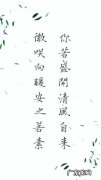 你若盛開清風自来
微咲向暖安之若素